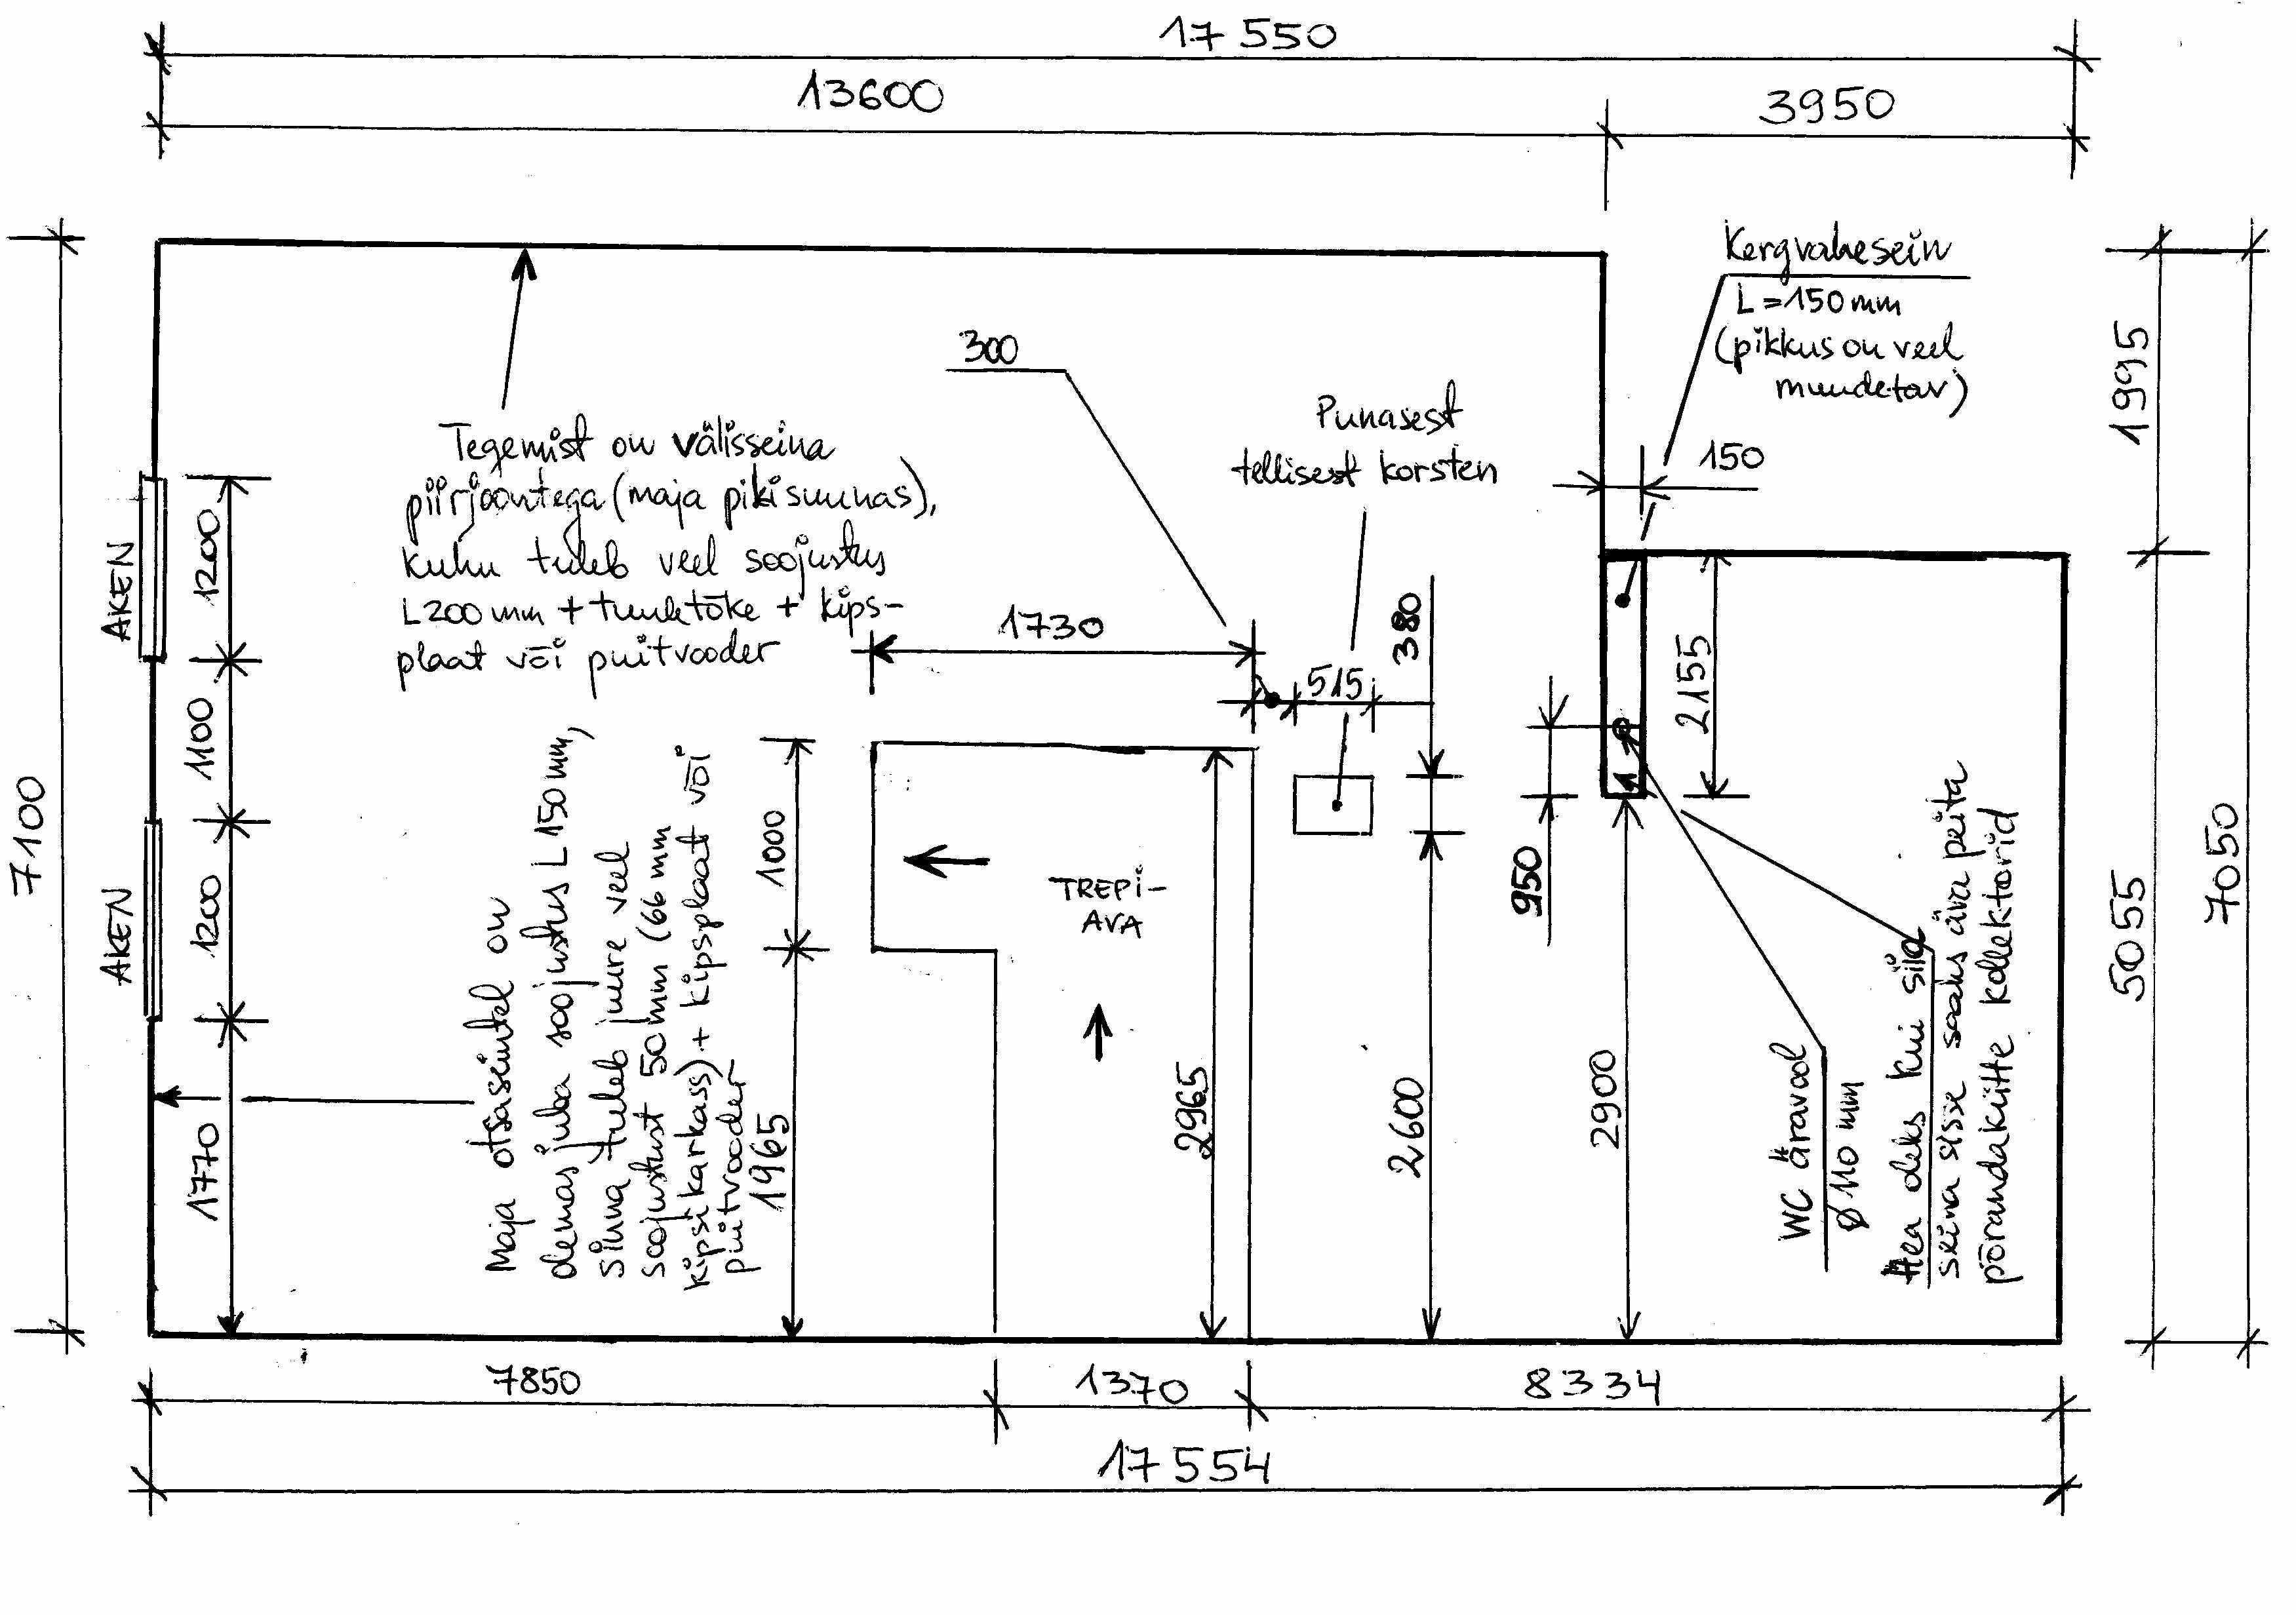 17 550
13600
3950
Kergvahesein
L=150 mm
(pikkus on veel
muudetav)
300
Punasest
tellisest korsten
150
1995
Tegemist on välisseina
piirjoontega (maja pikisuunas),
kuhu tuleb veel soojustus
L200 mm + tuuletõke + kips-
plaat või puitvooder
AKEN
1200
1100
AKEN
1200
1770
7100
1730
515
380
2155
950
1000
1965
TREPI-
AVA
2965
2600
2900
5055
7050
Maja otsaseintel on
olemas juba soojustus L 150 mm,
sinna tuleb juure veel
soojustust 50 mm (66 mm
kipsi karkass) + kipsplaat või
puitvooder
WC äravool
Ø 110 mm
Hea oleks kui siia
seina sisse saaks ära peita
põrandakütte kollektorid
7850
1370
8334
17 554